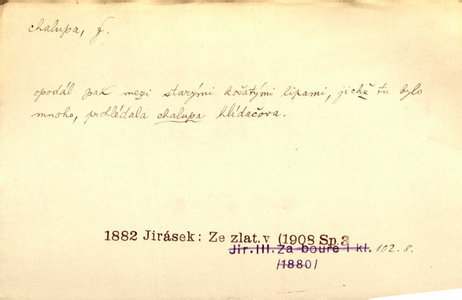 chalupa, f.
opodál pak mezi starými košatými lipami, jichž tu bylo
mnoho, prohlédala chalupa hlídačova.
1882 Jirásek: Ze zlat.v (1908 Sp 3
Jir.III.Za bouře i kl. 102.8.
/1880/